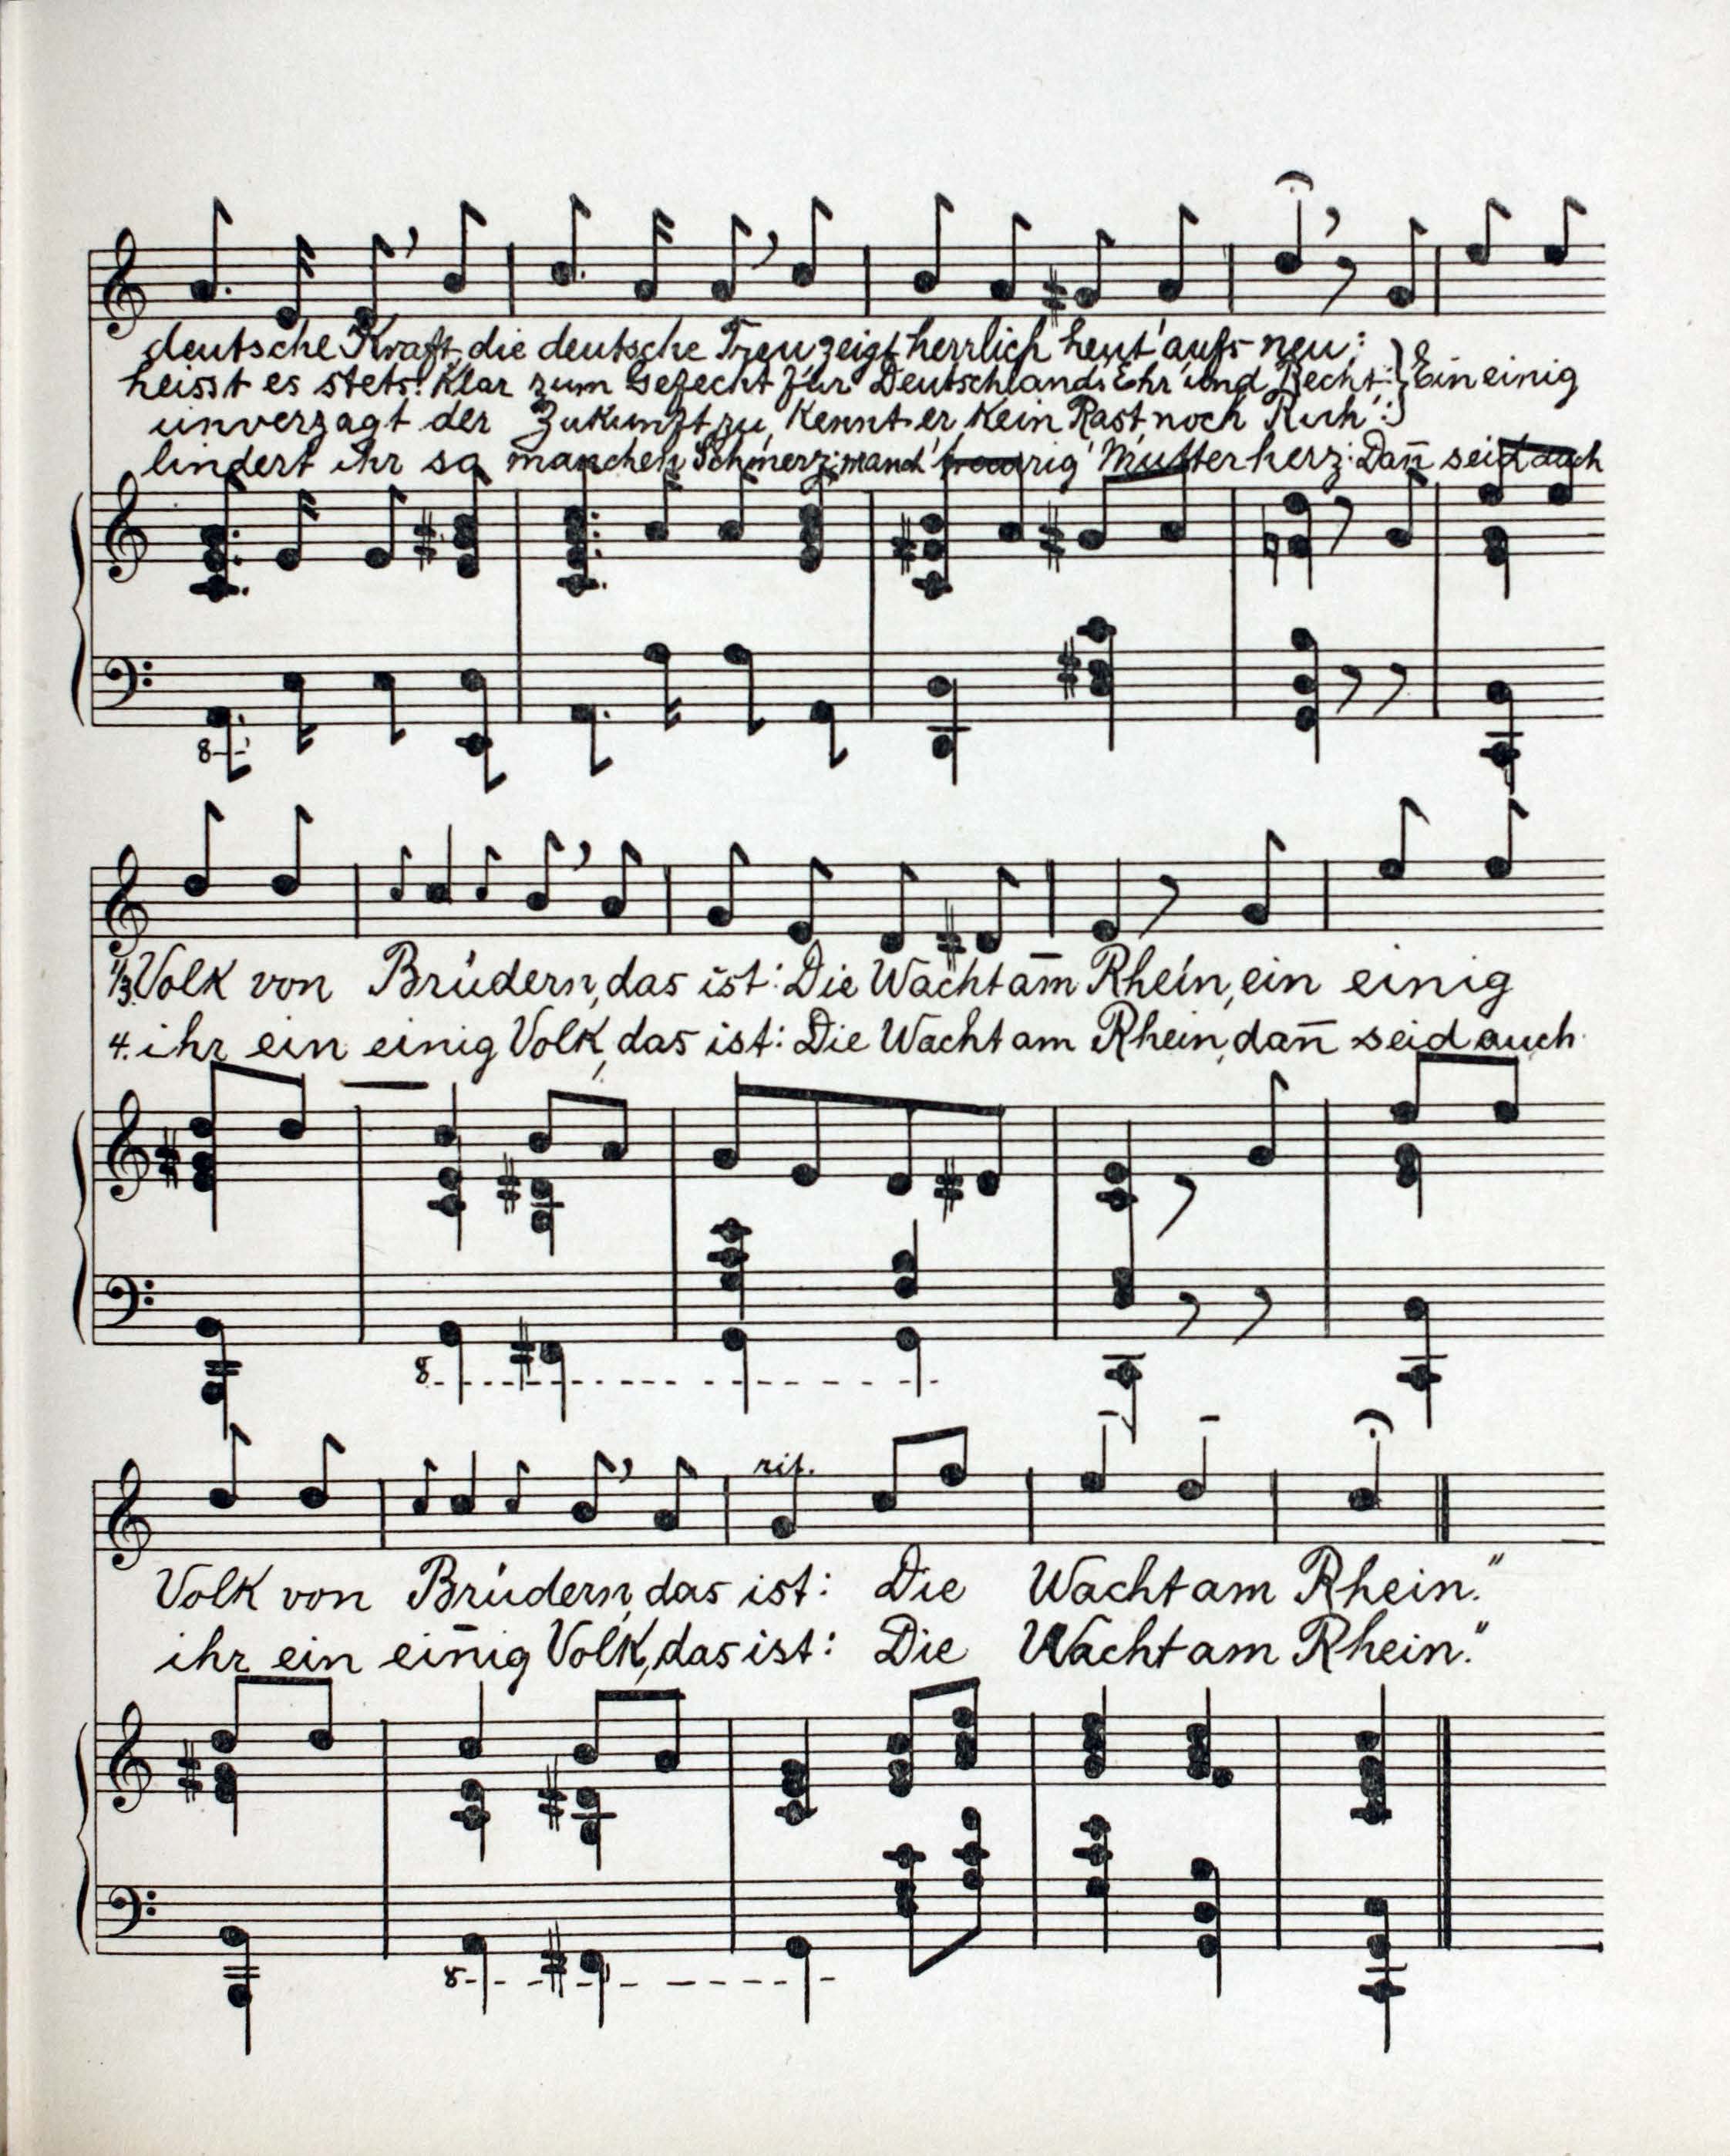 deutsche Kraft, die deutsche Treu zeigt herrlich heut' aufs neu:
heisst es stets: Klar zum Gefecht für Deutschlands Ehr' und Recht: } Ein einig
unverzagt der Zukunft zu, Kennt er Kein Rast noch Ruh':
lindert ihr so manchen Schmerz, manch' traurig' Mutterherz: Dañ seid auch
8
1/3. Volk von Brüdern, das ist: Die Wacht am̄ Rhein, ein einig
4. ihr ein einig Volk, das ist: Die Wacht am Rhein, dañ seid auch
8
rit.
Volk von Brüdern, das ist: Die Wacht am Rhein."
ihr ein ein̄ig Volk, das ist: Die Wacht am Rhein."
8